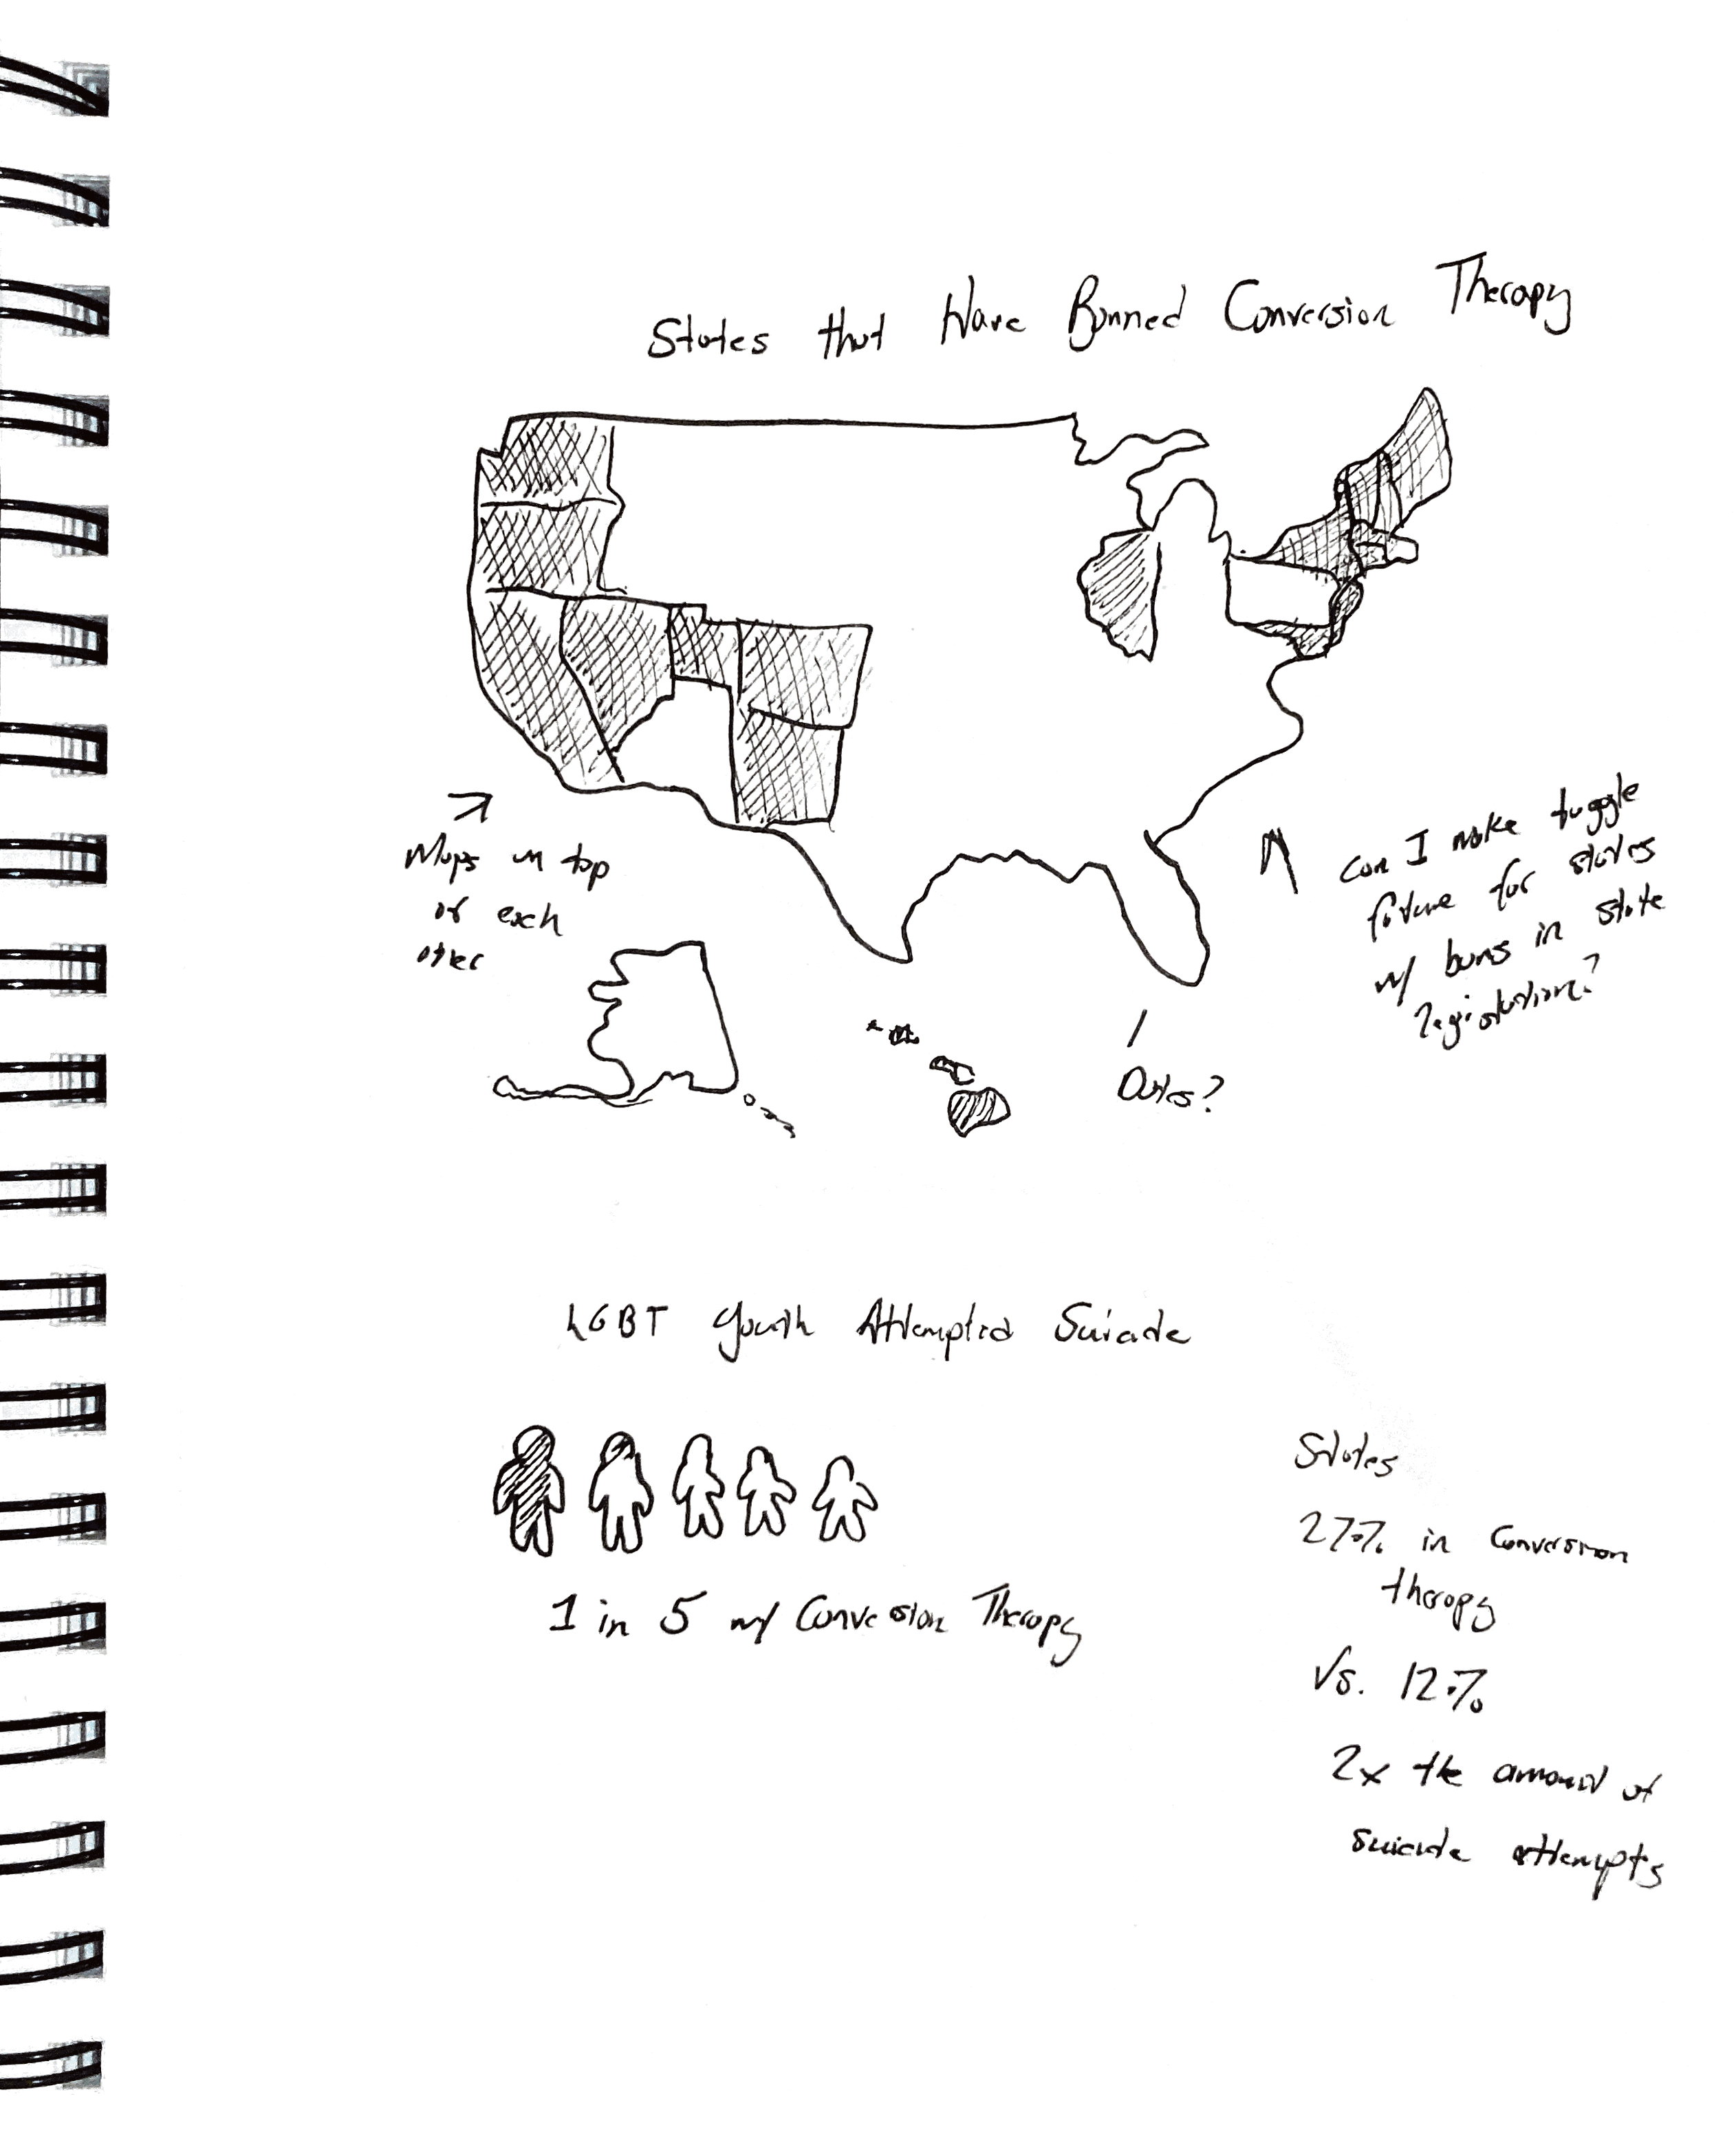 States that Have Banned Conversion Therapy
Maps on top
of each
other
can I make toggle
future for states
w/ bans in state
legislation?
Dates?
LGBT youth Attempted Suicide
1 in 5 w/ Conversion Therapy
States
27% in conversion
therapy
Vs. 12%
2x the amount of
suicide attempts